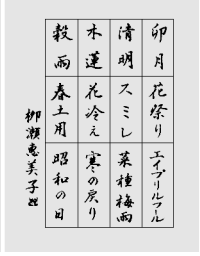 卯月
花祭り
エイプリルフール
清明
スミレ
菜種梅雨
木蓮
花冷え
寒の戻り
穀雨
春土用
昭和の日
柳瀬恵美子